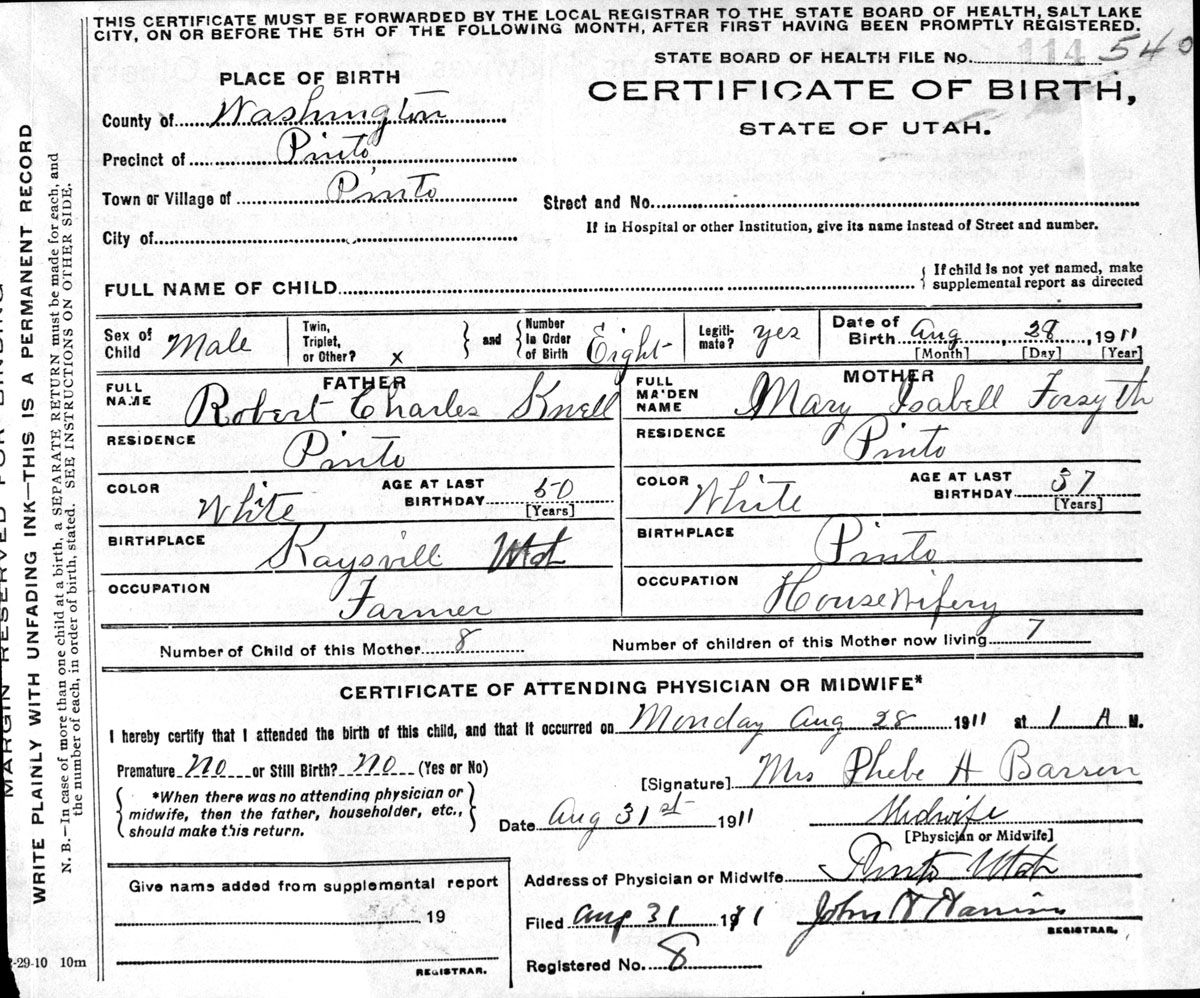 THIS CERTIFICATE MUST BE FORWARDED BY THE LOCAL REGISTRAR TO THE STATE BOARD OF HEALTH, SALT LAKE
CITY, ON OR BEFORE THE 5TH OF THE FOLLOWING MONTH, AFTER FIRST HAVING BEEN PROMPTLY REGISTERED.
STATE BOARD OF HEALTH FILE No. 114 540
PLACE OF BIRTH
CERTIFICATE OF BIRTH,
STATE OF UTAH.
County of Washington
Precinct of Pinto
Town or Village of Pinto
Street and No.
City of
If in Hospital or other Institution, give its name instead of Street and number.
FULL NAME OF CHILD
{ If child is not yet named, make
supplemental report as directed
Sex of Child Male
Twin, Triplet, or Other? x } and { Number in Order of Birth Eight
Legiti-mate? yes
Date of Birth Aug, 28, 1911
[Month] [Day] [Year]
FATHER
FULL NAME Robert Charles Knell
RESIDENCE Pinto
COLOR White AGE AT LAST BIRTHDAY 50 [Years]
BIRTHPLACE Kaysvill Utah
OCCUPATION Farmer
MOTHER
FULL MAIDEN NAME Mary Isabell Forsyth
RESIDENCE Pinto
COLOR White AGE AT LAST BIRTHDAY 37 [Years]
BIRTHPLACE Pinto
OCCUPATION HouseWifery
Number of Child of this Mother 8 Number of children of this Mother now living 7
CERTIFICATE OF ATTENDING PHYSICIAN OR MIDWIFE*
I hereby certify that I attended the birth of this child, and that it occurred on Monday Aug 28 1911 at 1 A M.
Premature No or Still Birth? No (Yes or No)
[Signature] Mrs Phebe A Barron
{ *When there was no attending physician or
midwife, then the father, householder, etc.,
should make this return. }
Date Aug 31st 1911 Midwife
[Physician or Midwife]
Give name added from supplemental report
19
REGISTRAR.
Address of Physician or Midwife Pinto Utah
Filed Aug 31 1911 John
REGISTRAR.
Registered No. 8
-29-10 10m
MARGIN RESERVED FOR BINDING
WRITE PLAINLY WITH UNFADING INK—THIS IS A PERMANENT RECORD
N. B.—In case of more than one child at a birth, a SEPARATE RETURN must be made for each, and
the number of each, in order of birth, stated. SEE INSTRUCTIONS ON OTHER SIDE.